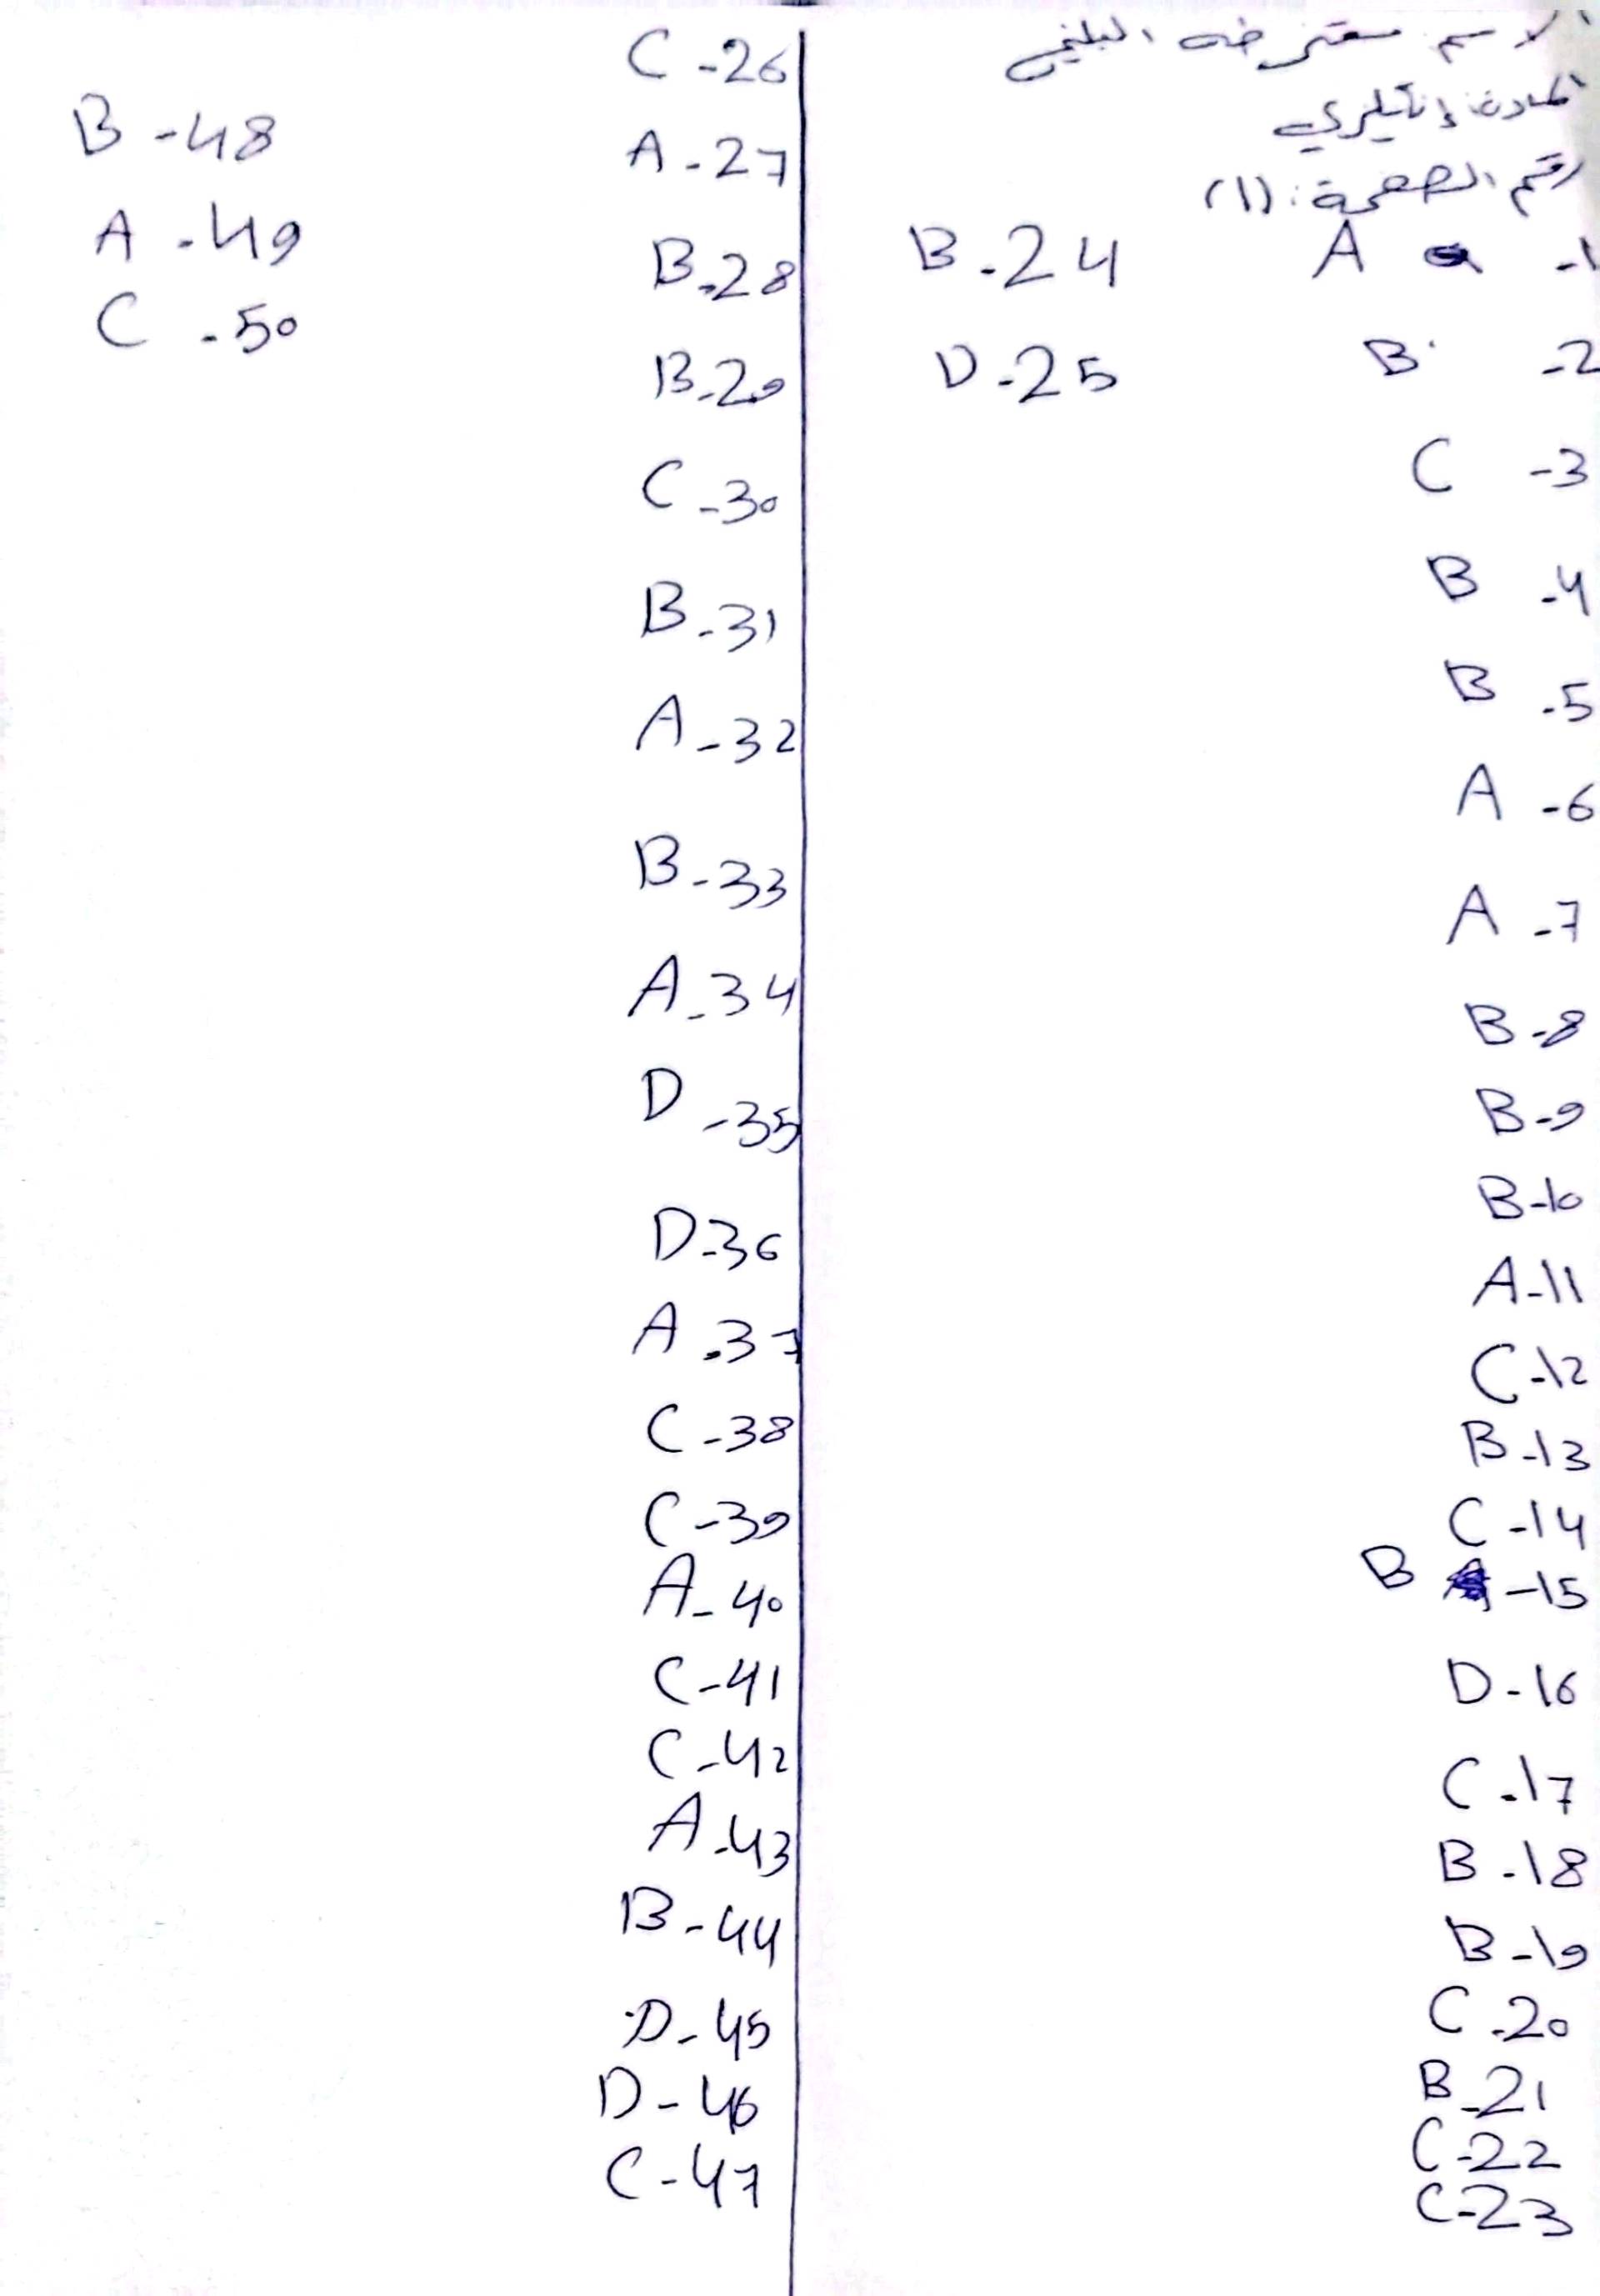 الاسم
المادة: إنكليزي
رقم الصفحة: (١)
A -1
B -2
C -3
B -4
B -5
A -6
A -7
B-8
B-9
B-10
A-11
C-12
B-13
C-14
B -15
D-16
C-17
B-18
B-19
C-20
B-21
C-22
C-23
B-24
D-25
C-26
A-27
B-28
B-29
C-30
B-31
A-32
B-33
A-34
D-35
D-36
A-37
C-38
C-39
A-40
C-41
C-42
A-43
B-44
D-45
D-46
C-47
B-48
A-49
C-50